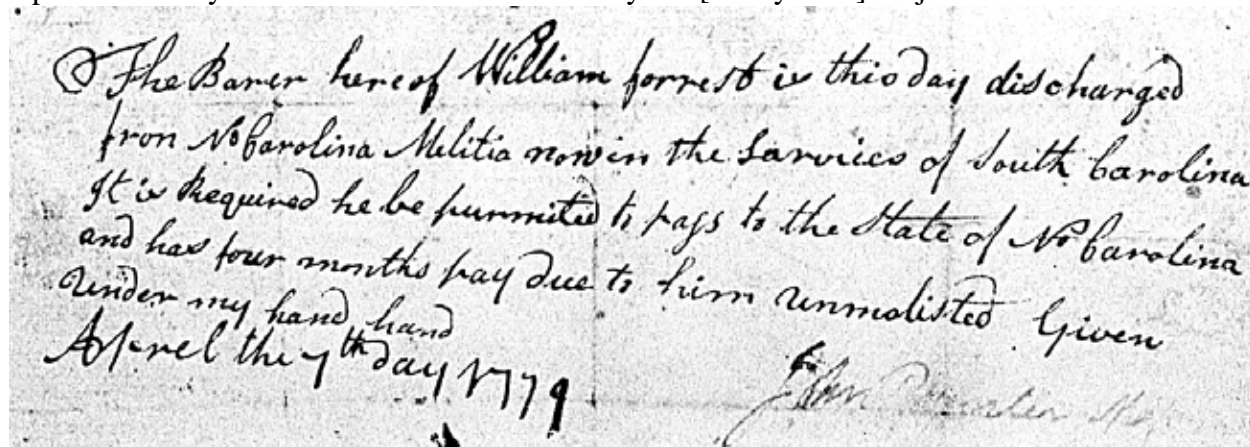 The Barer hereof William forrest is this day discharged
from No Carolina Militia now in the Sarvices of South Carolina
It is Required he be purmited to pass to the State of No Carolina
and has four months pay due to him unmolisted Given
Under my hand hand
Aprel the 7th day 1779
John